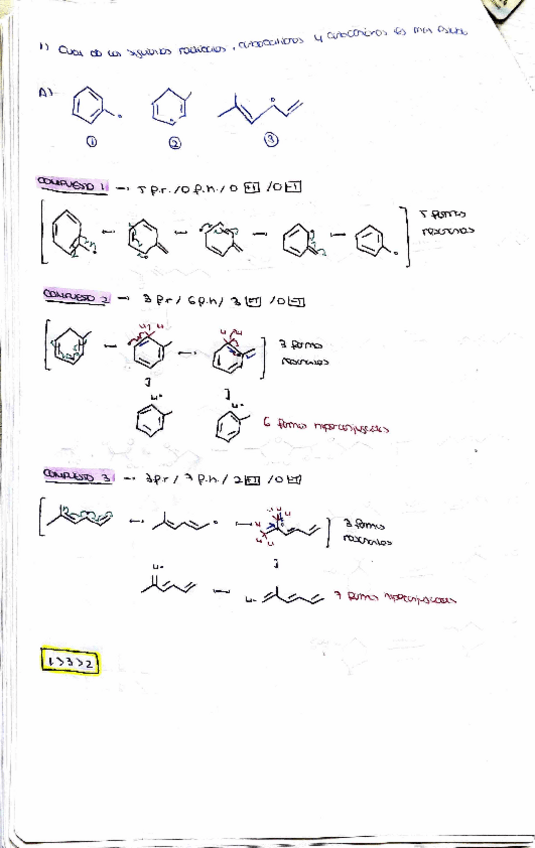 1) Cual de los siguientes radicales, carbocationes y carbaniones es más estable
A)
① ② ③
COMPUESTO 1 → 5 p.r. / 0 p.h. / 0 +I / 0 -I
5 formas
resonantes
COMPUESTO 2 → 3 p.r / 6 p.h / 3 +I / 0 -I
H H H H
3 formas
resonantes
H· H·
6 formas hiperconjugadas
COMPUESTO 3 → 3 p.r / 7 p.h / 2 +I / 0 -I
3 formas
resonantes
H·
H·
7 formas hiperconjugadas
1>3>2